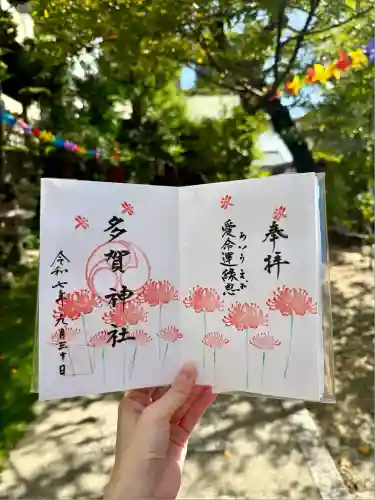 奉拝
愛命運縁恩
あいうえお
多賀神社
令和七年九月三十日